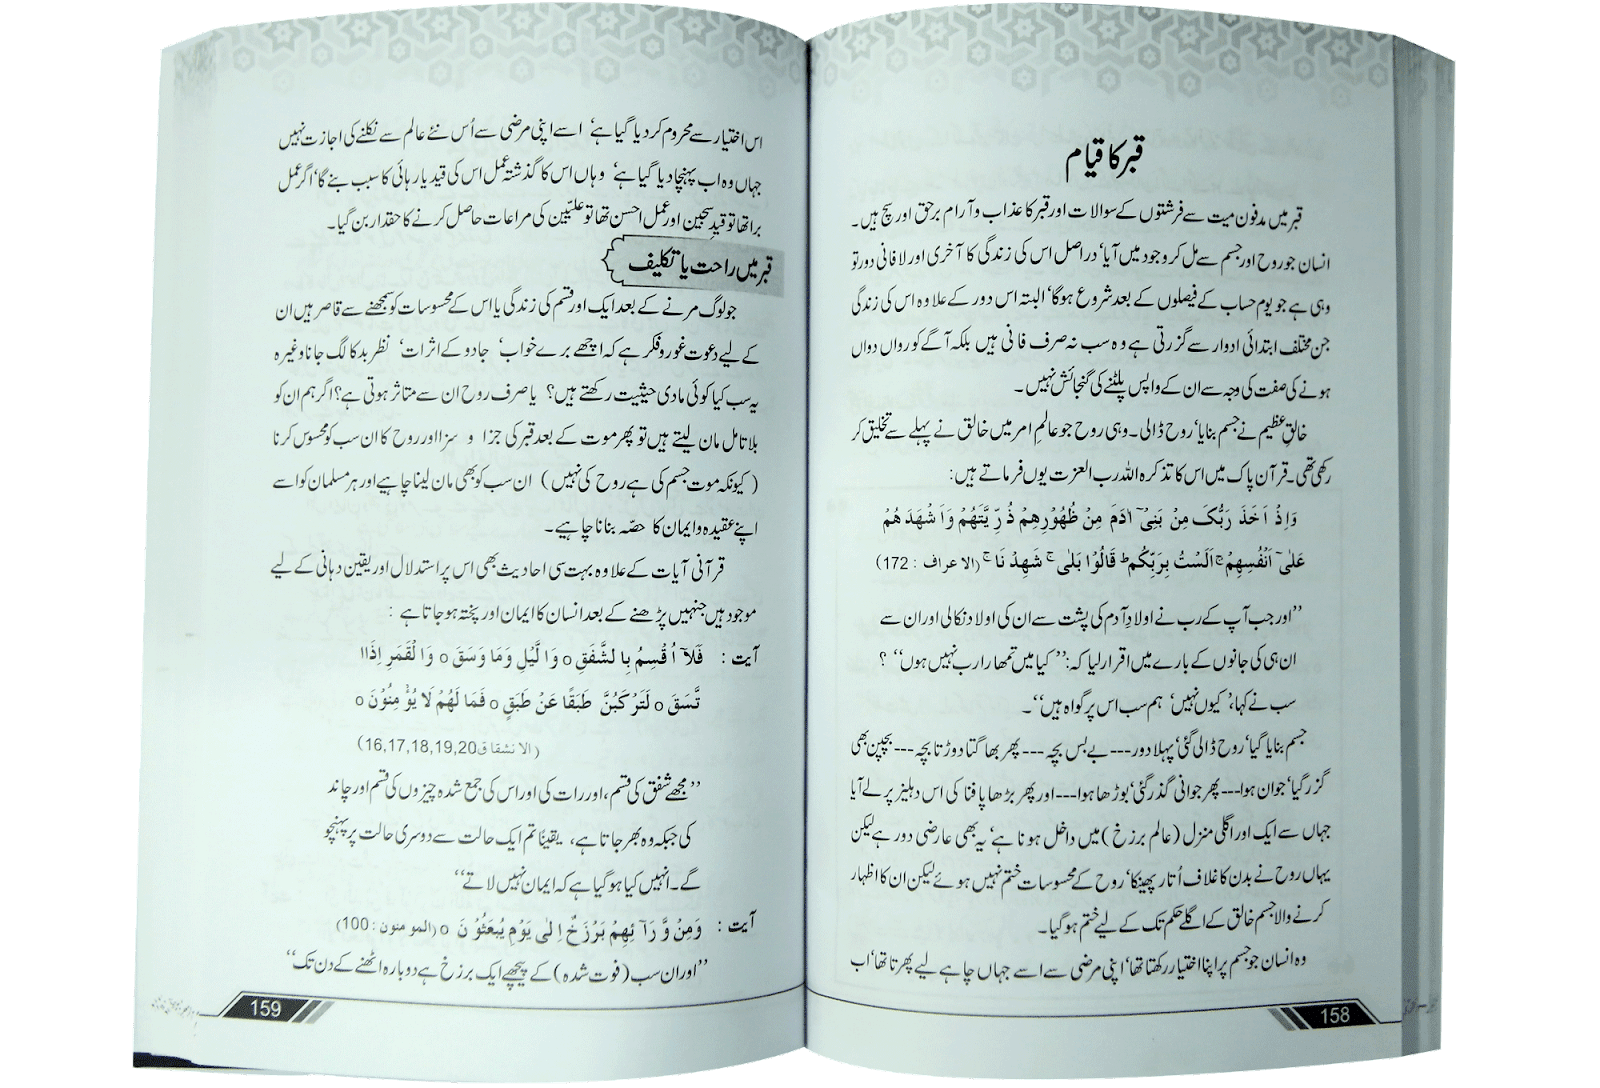 قبر کا قیام
قبر میں مدفون میت سے فرشتوں کے سوالات اور قبر کا عذاب و آرام برحق اور سچ ہیں۔
انسان جو روح اور جسم سے مل کر وجود میں آیا‘ دراصل اس کی زندگی کا آخری اور لافانی دور تو
وہی ہے جو یوم حساب کے فیصلوں کے بعد شروع ہوگا‘ البتہ اس دور کے علاوہ اس کی زندگی
جن مختلف ابتدائی ادوار سے گزرتی ہے وہ سب نہ صرف فانی ہیں بلکہ آگے کو رواں دواں
ہونے کی صفت کی وجہ سے ان کے واپس پلٹنے کی گنجائش نہیں۔
خالقِ عظیم نے جسم بنایا‘ روح ڈالی۔ وہی روح جو عالمِ امر میں خالق نے پہلے سے تخلیق کر
رکھی تھی۔ قرآن پاک میں اس کا تذکرہ اللہ رب العزت یوں فرماتے ہیں:
وَاِذْ اَخَذَ رَبُّکَ مِنْ بَنِیْٓ اٰدَمَ مِنْ ظُهُوْرِهِمْ ذُرِّیَّتَهُمْ وَاَشْهَدَهُمْ
عَلٰٓی اَنْفُسِهِمْ ۚ اَلَسْتُ بِرَبِّكُمْ ؕ قَالُوْا بَلٰی ۚ شَهِدْنَا ۚ (الاعراف : 172)
’’اور جب آپ کے رب نے اولادِ آدم کی پشت سے ان کی اولاد نکالی اور ان سے
ان ہی کی جانوں کے بارے میں اقرار لیا کہ: ’’کیا میں تمھارا رب نہیں ہوں‘‘ ؟
سب نے کہا، ’کیوں نہیں‘ ہم سب اس پر گواہ ہیں‘‘۔
جسم بنایا گیا‘ روح ڈالی گئی‘ پہلا دور --- بے بس بچہ --- پھر بھاگتا دوڑتا بچہ --- بچپن بھی
گزر گیا‘ جوان ہوا --- پھر جوانی گذر گئی‘ بوڑھا ہوا --- اور پھر بڑھاپا فنا کی اس دہلیز پر لے آیا
جہاں سے ایک اور اگلی منزل (عالم برزخ) میں داخل ہونا ہے‘ یہ بھی عارضی دور ہے لیکن
یہاں روح نے بدن کا غلاف اُتار پھینکا‘ روح کے محسوسات ختم نہیں ہوئے لیکن ان کا اظہار
کرنے والا جسم خالق کے اگلے حکم تک کے لیے ختم ہو گیا۔
وہ انسان جو جسم پر اپنا اختیار رکھتا تھا‘ اپنی مرضی سے اسے جہاں چاہے لیے پھرتا تھا‘ اب
158
اس اختیار سے محروم کر دیا گیا ہے‘ اسے اپنی مرضی سے اُس نئے عالم سے نکلنے کی اجازت نہیں
جہاں وہ اب پہنچا دیا گیا ہے‘ وہاں اس کا گذشتہ عمل اس کی قید یا رہائی کا سبب بنے گا‘ اگر عمل
برا تھا تو قیدِ سجین اور عمل احسن تھا تو علیّین کی مراعات حاصل کرنے کا حقدار بن گیا۔
قبر میں راحت یا تکلیف
جو لوگ مرنے کے بعد ایک اور قسم کی زندگی یا اس کے محسوسات کو سمجھنے سے قاصر ہیں ان
کے لیے دعوت غور و فکر ہے کہ اچھے برے خواب‘ جادو کے اثرات‘ نظر بد کا لگ جانا وغیرہ
یہ سب کیا کوئی مادی حیثیت رکھتے ہیں؟ یا صرف روح ان سے متاثر ہوتی ہے؟ اگر ہم ان کو
بلا تامل مان لیتے ہیں تو پھر موت کے بعد قبر کی جزا و سزا اور روح کا ان سب کو محسوس کرنا
(کیونکہ موت جسم کی ہے روح کی نہیں) ان سب کو بھی مان لینا چاہیے اور ہر مسلمان کو اسے
اپنے عقیدہ و ایمان کا حصّہ بنانا چاہیے۔
قرآنی آیات کے علاوہ بہت سی احادیث بھی اس پر استدلال اور یقین دہانی کے لیے
موجود ہیں جنہیں پڑھنے کے بعد انسان کا ایمان اور پختہ ہو جاتا ہے :
آیت : فَلَآ اُقْسِمُ بِالشَّفَقِ o وَالَّیْلِ وَمَا وَسَقَ o وَالْقَمَرِ اِذَا
تَّسَقَ o لَتَرْکَبُنَّ طَبَقًا عَنْ طَبَقٍ o فَمَا لَهُمْ لَا یُؤْمِنُوْنَ o
(الانشقاق 16,17,18,19,20)
’’مجھے شفق کی قسم، اور رات کی اور اس کی جمع شدہ چیزوں کی قسم اور چاند
کی جبکہ وہ بھر جاتا ہے، یقینًا تم ایک حالت سے دوسری حالت پر پہنچو
گے۔ انہیں کیا ہو گیا ہے کہ ایمان نہیں لاتے‘‘
آیت : وَمِنْ وَّرَآئِهِمْ بَرْزَخٌ اِلٰی یَوْمِ یُبْعَثُوْنَ o (المومنون : 100)
’’اور ان سب (فوت شدہ) کے پیچھے ایک برزخ ہے دوبارہ اٹھنے کے دن تک‘‘
159